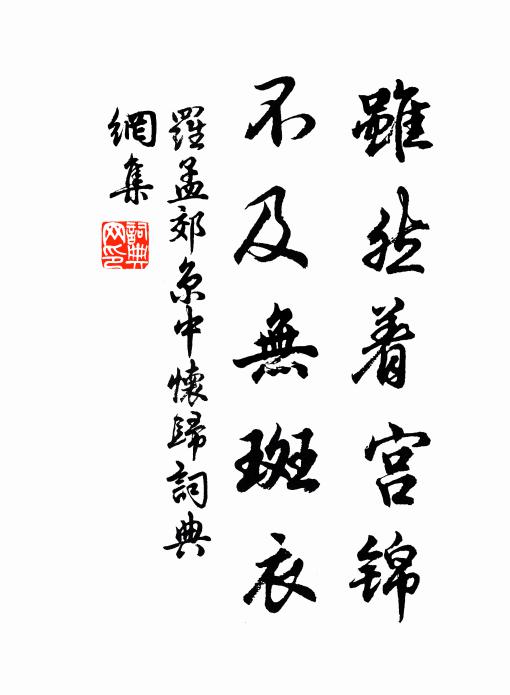 雖然着宫锦
不及無斑衣
羅孟郊京中懷歸詞典
網集
詞典網印